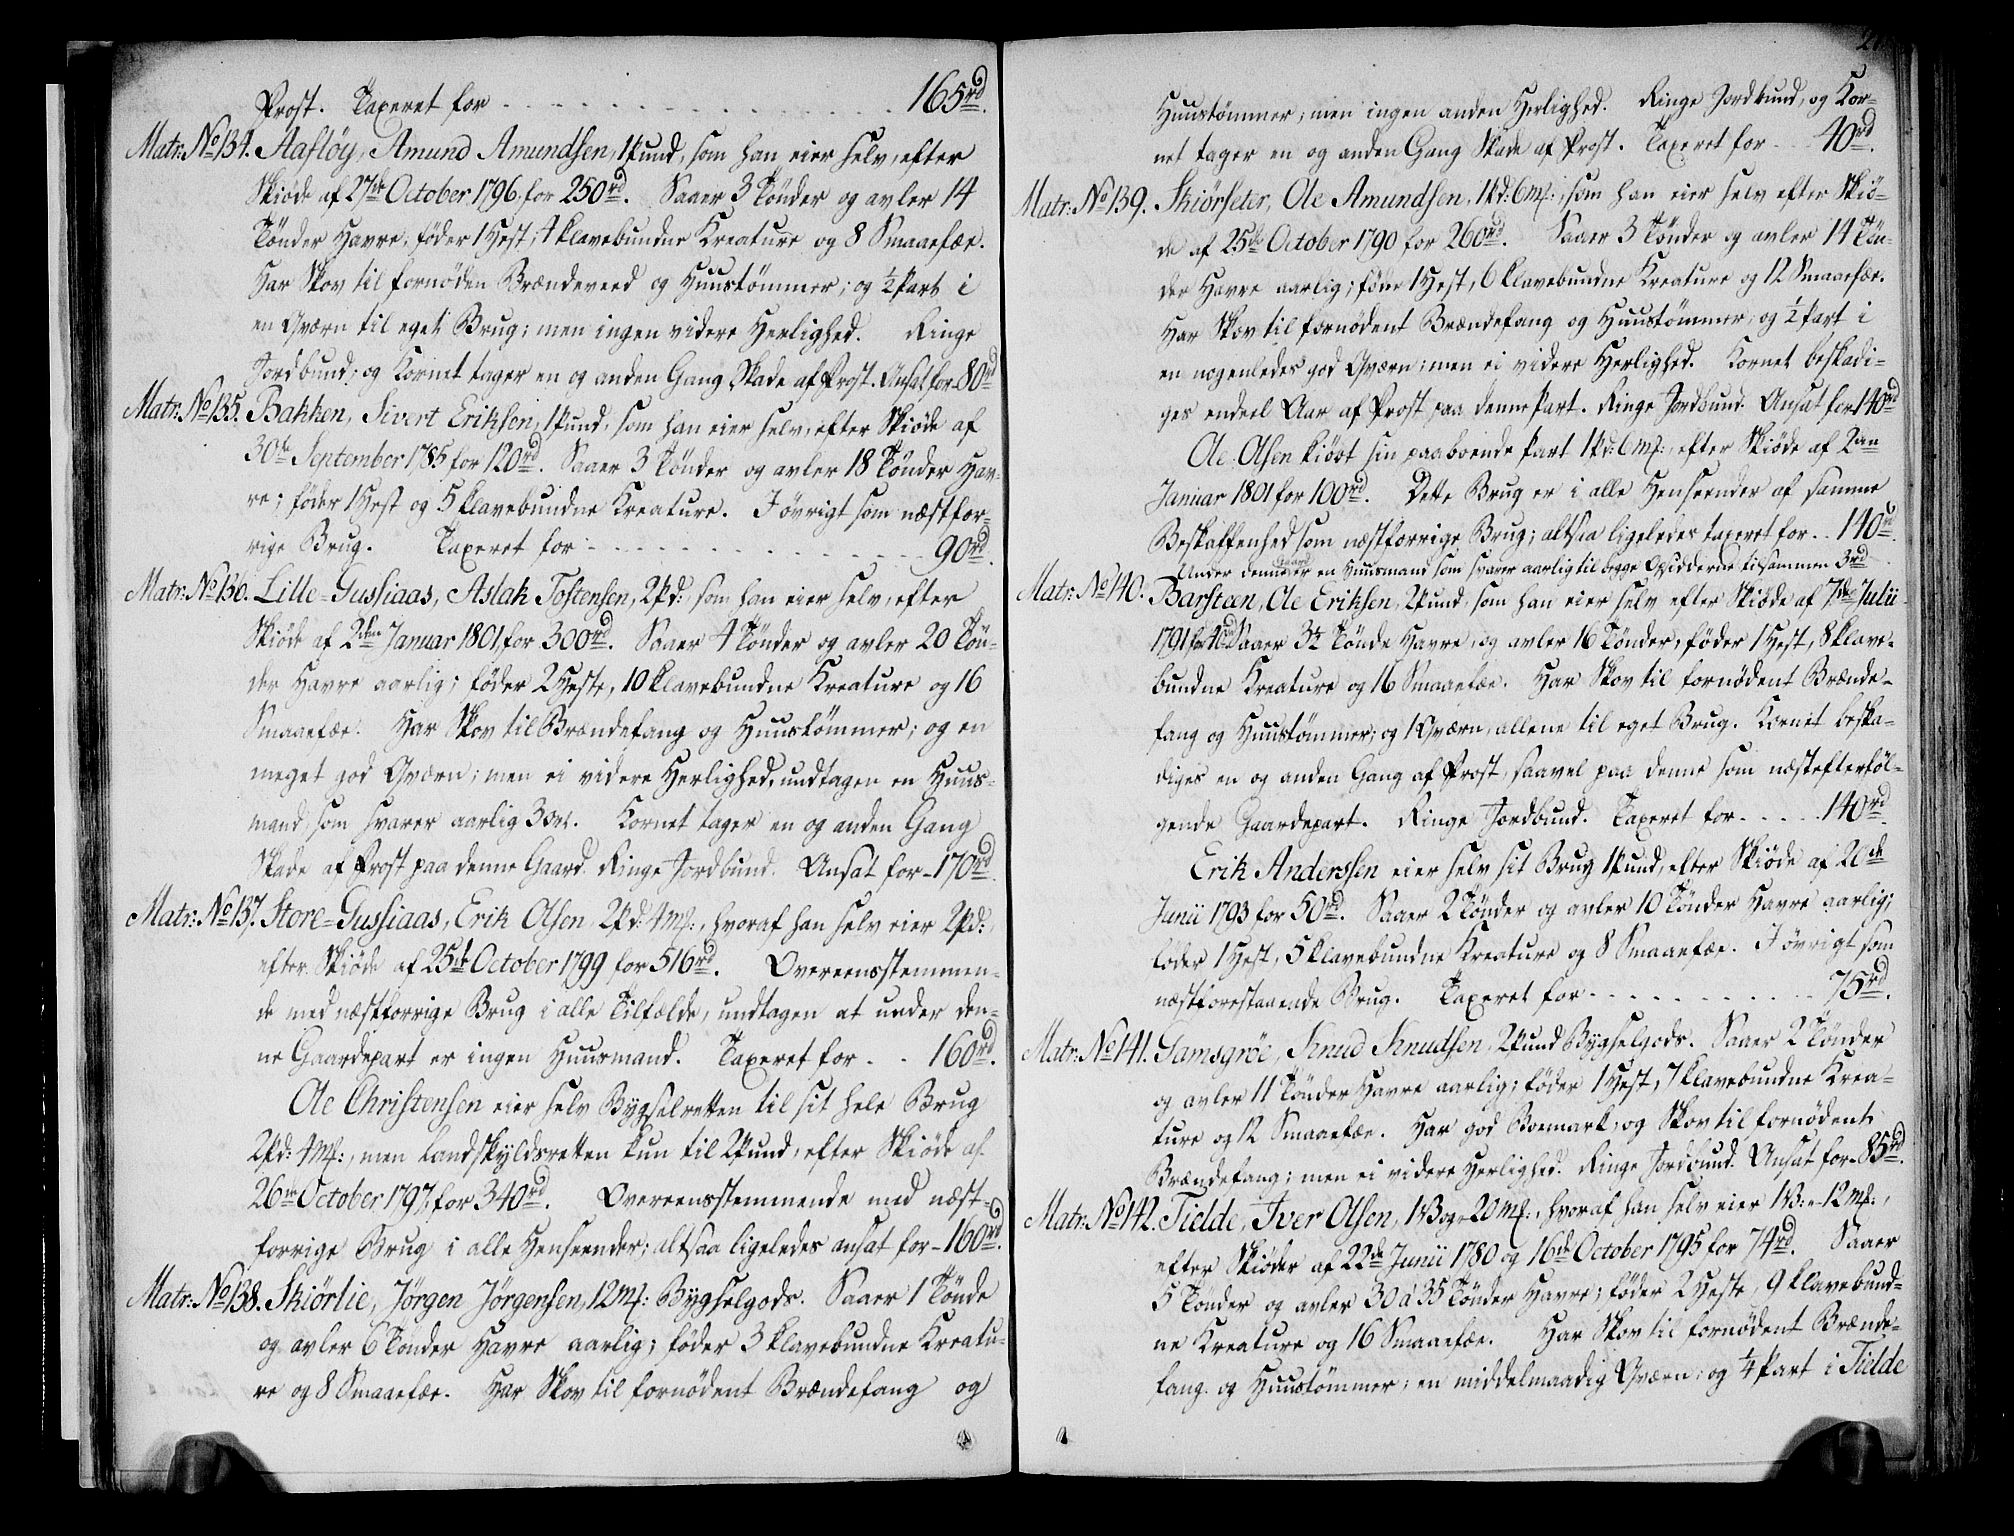 Frost. Taxeret for - - - - - - - - - 165rd.
Matr: No 134. Aafløy, Amund Amundsen, 1 Pund, som han eier selv, efter
Skiøde af 27de October 1796, for 250rd. Saaer 3 Tønder og avler 14
Tønder Havre; føder 1 Hest, 4 klavebundne Kreature og 8 Smaaefæe.
Har Skov til fornøden Brændeveed og Huustømmer; og ½ Part i
en Qværn til eget Brug; men ingen videre Herlighed. Ringe
Jordbund; og Kornet tager en og anden Gang Skade af Frost. Ansat for - 80rd
Matr: No 135. Bakken, Sivert Eriksen, 1 Pund, som han eier selv, efter Skiøde af
30te September 1785 for 120rd. Saaer 3 Tønder og avler 18 Tønder Hav-
re; føder 1 Hest og 5 klavebundne Kreature. I øvrigt som næstfor-
rige Brug. Taxeret for - - - - - - - - - 90rd.
Matr: No 136. Lille-Gussiaas, Aslak Tostensen, 2 Pd:, som han eier selv, efter
Skiøde af 2den Januar 1801, for 300rd. Saaer 4 Tønder og avler 20 Tøn-
der Havre aarlig; føder 2 Heste, 10 klavebundne Kreature og 16
Smaaefæe. Har Skov til Brændefang og Huustømmer; og en
meget god Qværn; men ei videre Herlighed, undtagen en Huus-
mand som svarer aarlig 3 Ort. Kornet tager en og anden Gang
Skade af Frost paa denne Gaard. Ringe Jordbund. Ansat for - 170rd.
Matr: No 137. Store-Gussiaas, Erik Olsen 2 Pd: 4 Mk:, hvoraf han selv eier 2 Pd:,
efter Skiøde af 25de October 1799 for 516rd. Overeensstemmen-
de med næstforrige Brug i alle Tilfælde, undtagen at under den-
ne Gaardepart er ingen Huusmand. Taxeret for - - 160rd.
Ole Christensen eier selv Bygselretten til sit hele Brug
2 Pd: 4 Mk:, men Landskyldsretten kun til 2 Pund, efter Skiøde af
26de October 1797, for 340rd. Overeensstemmende med næst-
forrige Brug i alle Henseender; altsaa ligeledes ansat for - 160rd.
Matr: No 138. Skiørlie, Jørgen Jørgensen, 12 Mk: Bygselgods. Saaer 1 Tønde
og avler 6 Tønder Havre aarlig; føder 3 klavebundne Kreatu-
re og 8 Smaaefæe. Har Skov til fornødent Brændefang og
Huustømmer, men ingen anden Herlighed. Ringe Jordbund, og Kor-
net tager en og anden Gang Skade af Frost. Taxeret for - - 40rd.
Matr: No 139. Skiørseter, Ole Amundsen, 1 Pd: 6 Mk:, som han eier selv efter Skiø-
de af 25de October 1790 for 260rd. Saaer 3 Tønder og avler 14 Tøn-
der Havre aarlig; føder 1 Hest, 6 klavebundne Kreature og 12 Smaaefæe.
Har Skov til fornødent Brændefang og Huustømmer; og ½ Part i
en nogenledes god Qværn; men ei videre Herlighed. Kornet beskadi-
ges endeel Aar af Frost paa denne Part. Ringe Jordbund. Ansat for 140rd
Ole Olsen kiøbt sin paaboende Part 1 Pd: 6 Mk:, efter Skiøde af 2den
Januar 1801 for 100rd. Dette Brug er i alle Henseender af samme
Beskaffenhed som næstforrige Brug; altsaa ligeledes taxeret for - - 140rd.
Under denne Gaard er en Huusmand som svarer aarlig til begge Opsidderne tilsammen 3rd
Matr: No 140. Barsteen, Ole Eriksen, 2 Pund, som han eier selv efter Skiøde af 7de Julii
1791 for Saaer 3½ Tønde Havre, og avler 16 Tønder; føder 1 Hest, 8 klave-
bundne Kreature og 16 Smaaefæe. Har Skov til fornødent Brænde-
fang og Huustømmer; og 1 Qværn, allene til eget Brug. Kornet beska-
diges en og anden Gang af Frost, saavel paa denne som næstefterføl-
gende Gaardepart. Ringe Jordbund. Taxeret for - - - - - 140rd.
Erik Anderssen eier selv sit Brug 1 Pund, efter Skiøde af
Junii 1793 for 50rd. Saaer 2 Tønder og avler 10 Tønder Havre aarlig;
føder 1 Hest, 5 klavebundne Kreature og 8 Smaaefæe. I øvrigt som
næstforestaaende Brug. Taxeret for - - - - - - - - - 75rd.
Matr: No 141. Gamsgrøe, Knud Knudsen, 2 Pund Bygselgods. Saaer 2 Tønder
og avler 11 Tønder Havre aarlig; føder 1 Hest, 7 klavebundne Krea-
ture og 12 Smaaefæe. Har god Boemark, og Skov til fornødent
Brændefang; men ei videre Herlighed. Ringe Jordbund. Ansat for - 85rd.
Matr: No 142. Tielde, Iver Olsen, 1 V og 20 Mk:, hvoraf han selv eier 1 V: - 12 Mk:,
efter Skiøder af 22de Junii 1780 og 16de October 1795 for 74rd. Saaer
5 Tønder og avler 30 a 35 Tønder Havre; føder 2 Heste, 9 klavebund-
ne Kreature og 16 Smaaefæe. Har Skov til fornødent Brænde-
fang og Huustømmer; en middelmaadig Qværn; og ¼ Part i Tielde